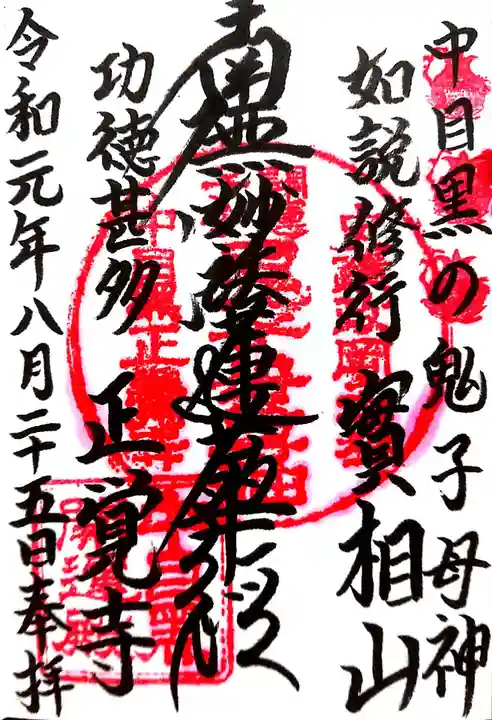 中目黒の鬼子母神
如説修行 實相山
南無妙法蓮華経
功徳甚多 正覚寺
令和元年八月二十五日奉拝